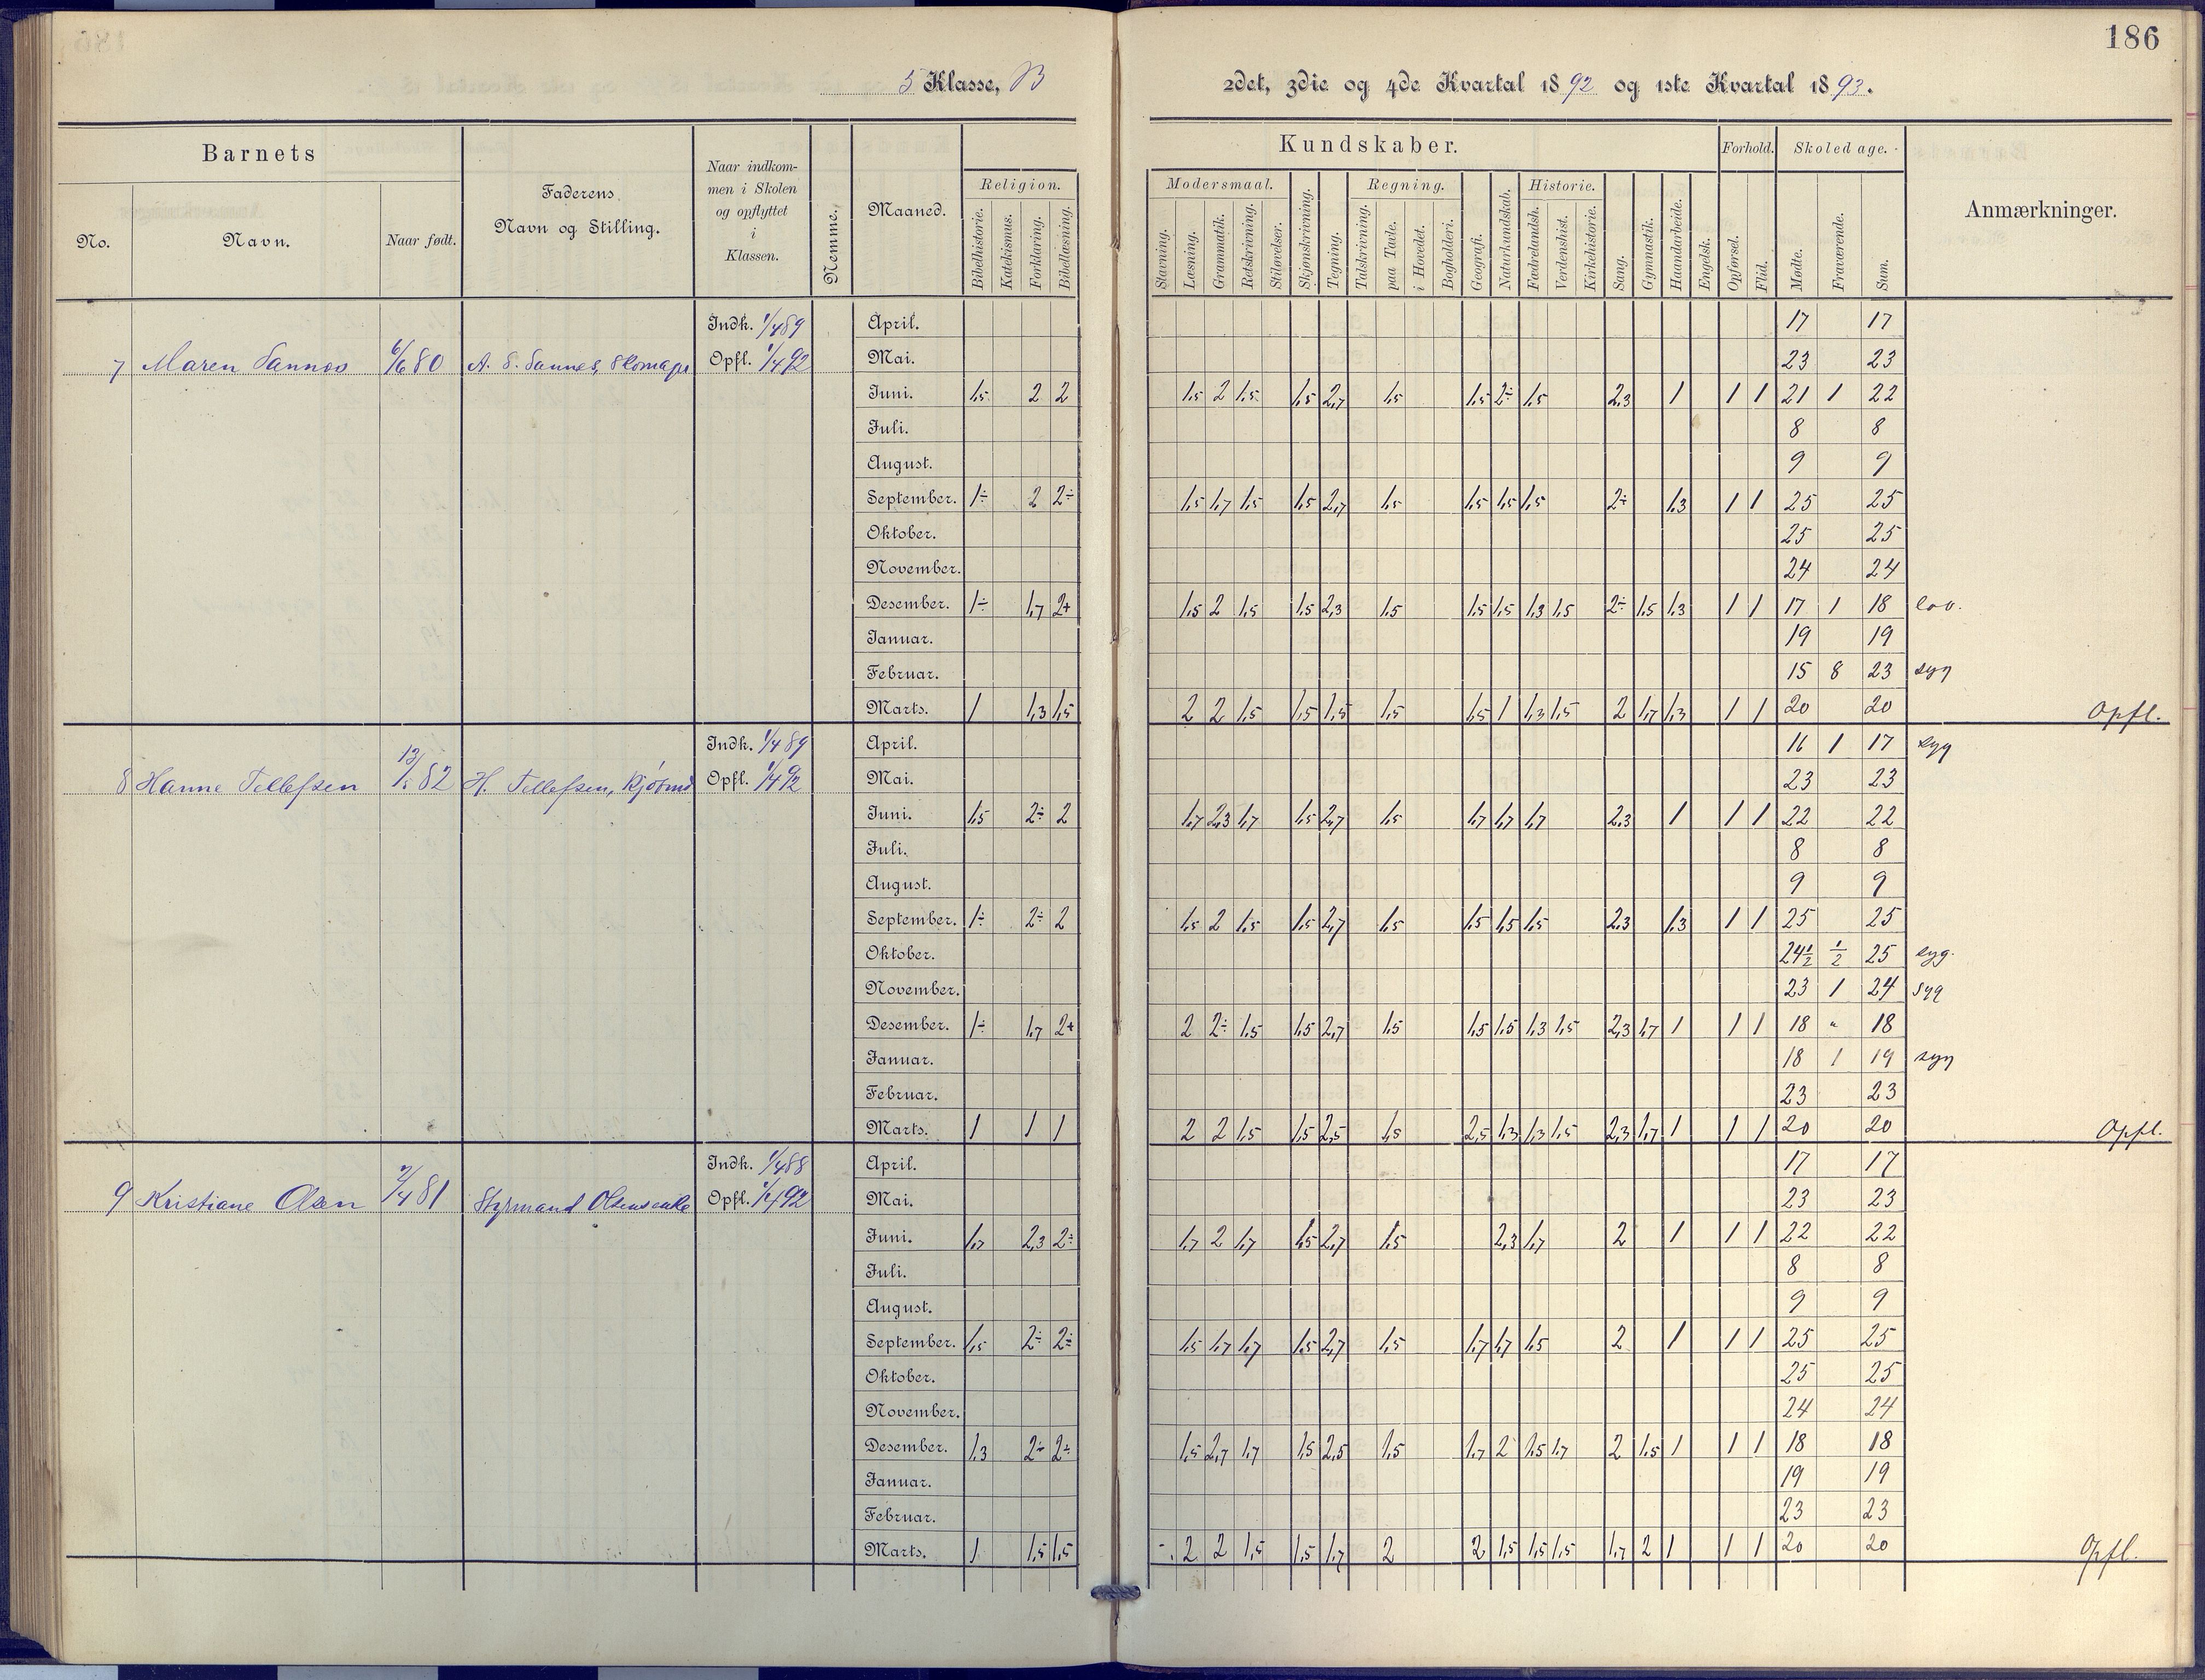 186
5 Klasse, B
2det, 3die og 4de Kvartal 1892 og 1ste Kvartal 1893.
Barnets
No.
Navn.
Naar født.
Faderens
Navn og Stilling.
Naar indkom-
men i Skolen
og opflyttet
i
Klassen.
Nemme.
Maaned.
Kundskaber.
Religion.
Bibelhistorie.
Katekismus.
Forklaring.
Bibellæsning.
Modersmaal.
Stavning.
Læsning.
Grammatik.
Retskrivning.
Stiløvelser.
Skjønskrivning.
Tegning.
Regning.
Talskrivning.
paa Tavle.
i Hovedet.
Bogholderi.
Geografi.
Naturkundskab.
Historie.
Fædrelandsh.
Verdenshist.
Kirkehistorie.
Sang.
Gymnastik.
Haandarbeide.
Engelsk.
Forhold.
Opførsel.
Flid.
Skoledage.
Mødte.
Fraværende.
Sum.
Anmærkninger.
7 Maren Sannes 6/6 80 A. S. Sannes,
Indk. 1/4 89
Opfl. 1/4 92
April. 17 17
Mai. 23 23
Juni. 1,5 2 2 1,5 2 1,5 1,5 2,7 1,5 1,5 2÷ 1,5 2,3 1 1 1 21 1 22
Juli. 8 8
August. 9 9
September. 1÷ 2 2÷ 1,5 1,7 1,5 1,5 2,7 1,5 1,5 1,5 1,5 2÷ 1,3 1 1 25 25
Oktober. 25 25
November. 24 24
Desember. 1÷ 1,7 2+ 1,5 2 1,5 1,5 2,3 1,5 1,5 1,5 1,3 1,5 2÷ 1,5 1,3 1 1 17 1 18 lov.
Januar. 19 19
Februar. 15 8 23 syg
Marts. 1 1,3 1,5 2 2 1,5 1,5 1,5 1,5 1,5 1 1,3 1,5 2 1,7 1,3 1 1 20 20 Opfl.
8 Hanne Tellefsen 82 H. Tellefsen, Kjøbmd
Indk. 1/4 89
Opfl. 1/4 92
April. 16 1 17 syg
Mai. 23 23
Juni. 1,5 2÷ 2 1,7 2,3 1,7 1,5 2,7 1,5 1,7 1,7 1,7 2,3 1 1 1 22 22
Juli. 8 8
August. 9 9
September. 1÷ 2÷ 2 1,5 2 1,5 1,5 2,7 1,5 1,5 1,5 1,5 2,3 1,3 1 1 25 25
Oktober. 24½ ½ 25 syg.
November. 23 1 24 syg
Desember. 1÷ 1,7 2+ 2 2÷ 1,5 1,5 2,7 1,5 1,5 1,5 1,3 1,5 2,3 1,7 1 1 1 18 " 18
Januar. 18 1 19 syg
Februar. 23 23
Marts. 1 1 1 2 2 1,5 1,5 2,5 1,5 2,5 1,3 1,3 1,5 2,3 1,7 1 1 1 20 20 Opfl.
9 Kristiane Olsen 2/4 81 Styrmand Olsens enke
Indk. 1/4 88
Opfl. 1/4 92
April. 17 17
Mai. 23 23
Juni. 1,7 2,3 2÷ 1,7 2 1,7 1,5 2,7 1,5 2,3 1,7 2 1 1 1 22 22
Juli. 8 8
August. 9 9
September. 1,5 2÷ 2÷ 1,5 1,7 1,7 1,5 2,7 1,5 1,7 1,7 1,5 2 1 1 1 25 25
Oktober. 25 25
November. 24 24
Desember. 1,3 2÷ 2÷ 1,5 2,7 1,7 1,5 2,5 1,5 1,7 2 1,5 1,7 2 1,5 1 1 1 18 18
Januar. 19 19
Februar. 23 23
Marts. 1 1,5 1,5 2 2 1,5 1,5 1,7 2 2 1,5 1,5 1,5 1,7 2 1 1 1 20 20 Opfl.